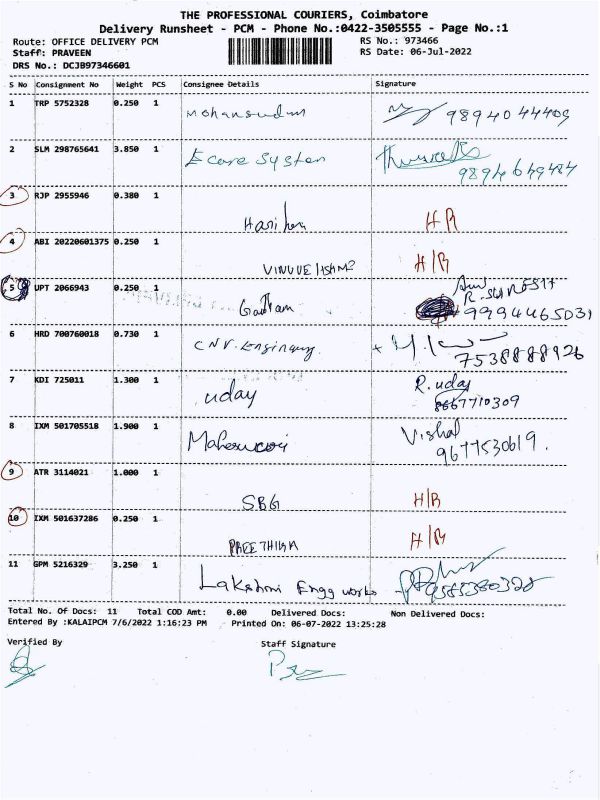 THE PROFESSIONAL COURIERS, Coimbatore
Delivery Runsheet - PCM - Phone No.:0422-3505555 - Page No.:1
Route: OFFICE DELIVERY PCM RS No.: 973466
Staff: PRAVEEN RS Date: 06-Jul-2022
DRS No.: DCJB97346601
S No Consignment No Weight PCS Consignee Details Signature
1 TRP 5752328 0.250 1
Mohansundm 9894044409
2 SLM 298765641 3.850 1
Ecare System
9894649484
3 RJP 2955946 0.380 1
Hari H/R
4 ABI 20220601375 0.250 1
H/R
5 UPT 2066943 0.250 1
R. SURESH
Gautham 9994465031
6 HRD 700760018 0.730 1
CNV. Enginering 7538888926
7 KDI 725011 1.300 1
uday R. uday
8667710309
8 IXM 501705518 1.900 1
Maheswari Vishal
9677530619.
9 ATR 3114021 1.000 1
SBG H/R
10 IXM 501637286 0.250 1
PREETHIKA H/R
11 GPM 5216329 3.250 1
Lakshmi Engg works 9585380328
Total No. Of Docs: 11 Total COD Amt: 0.00 Delivered Docs: Non Delivered Docs:
Entered By :KALAIPCM 7/6/2022 1:16:23 PM Printed On: 06-07-2022 13:25:28
Verified By Staff Signature